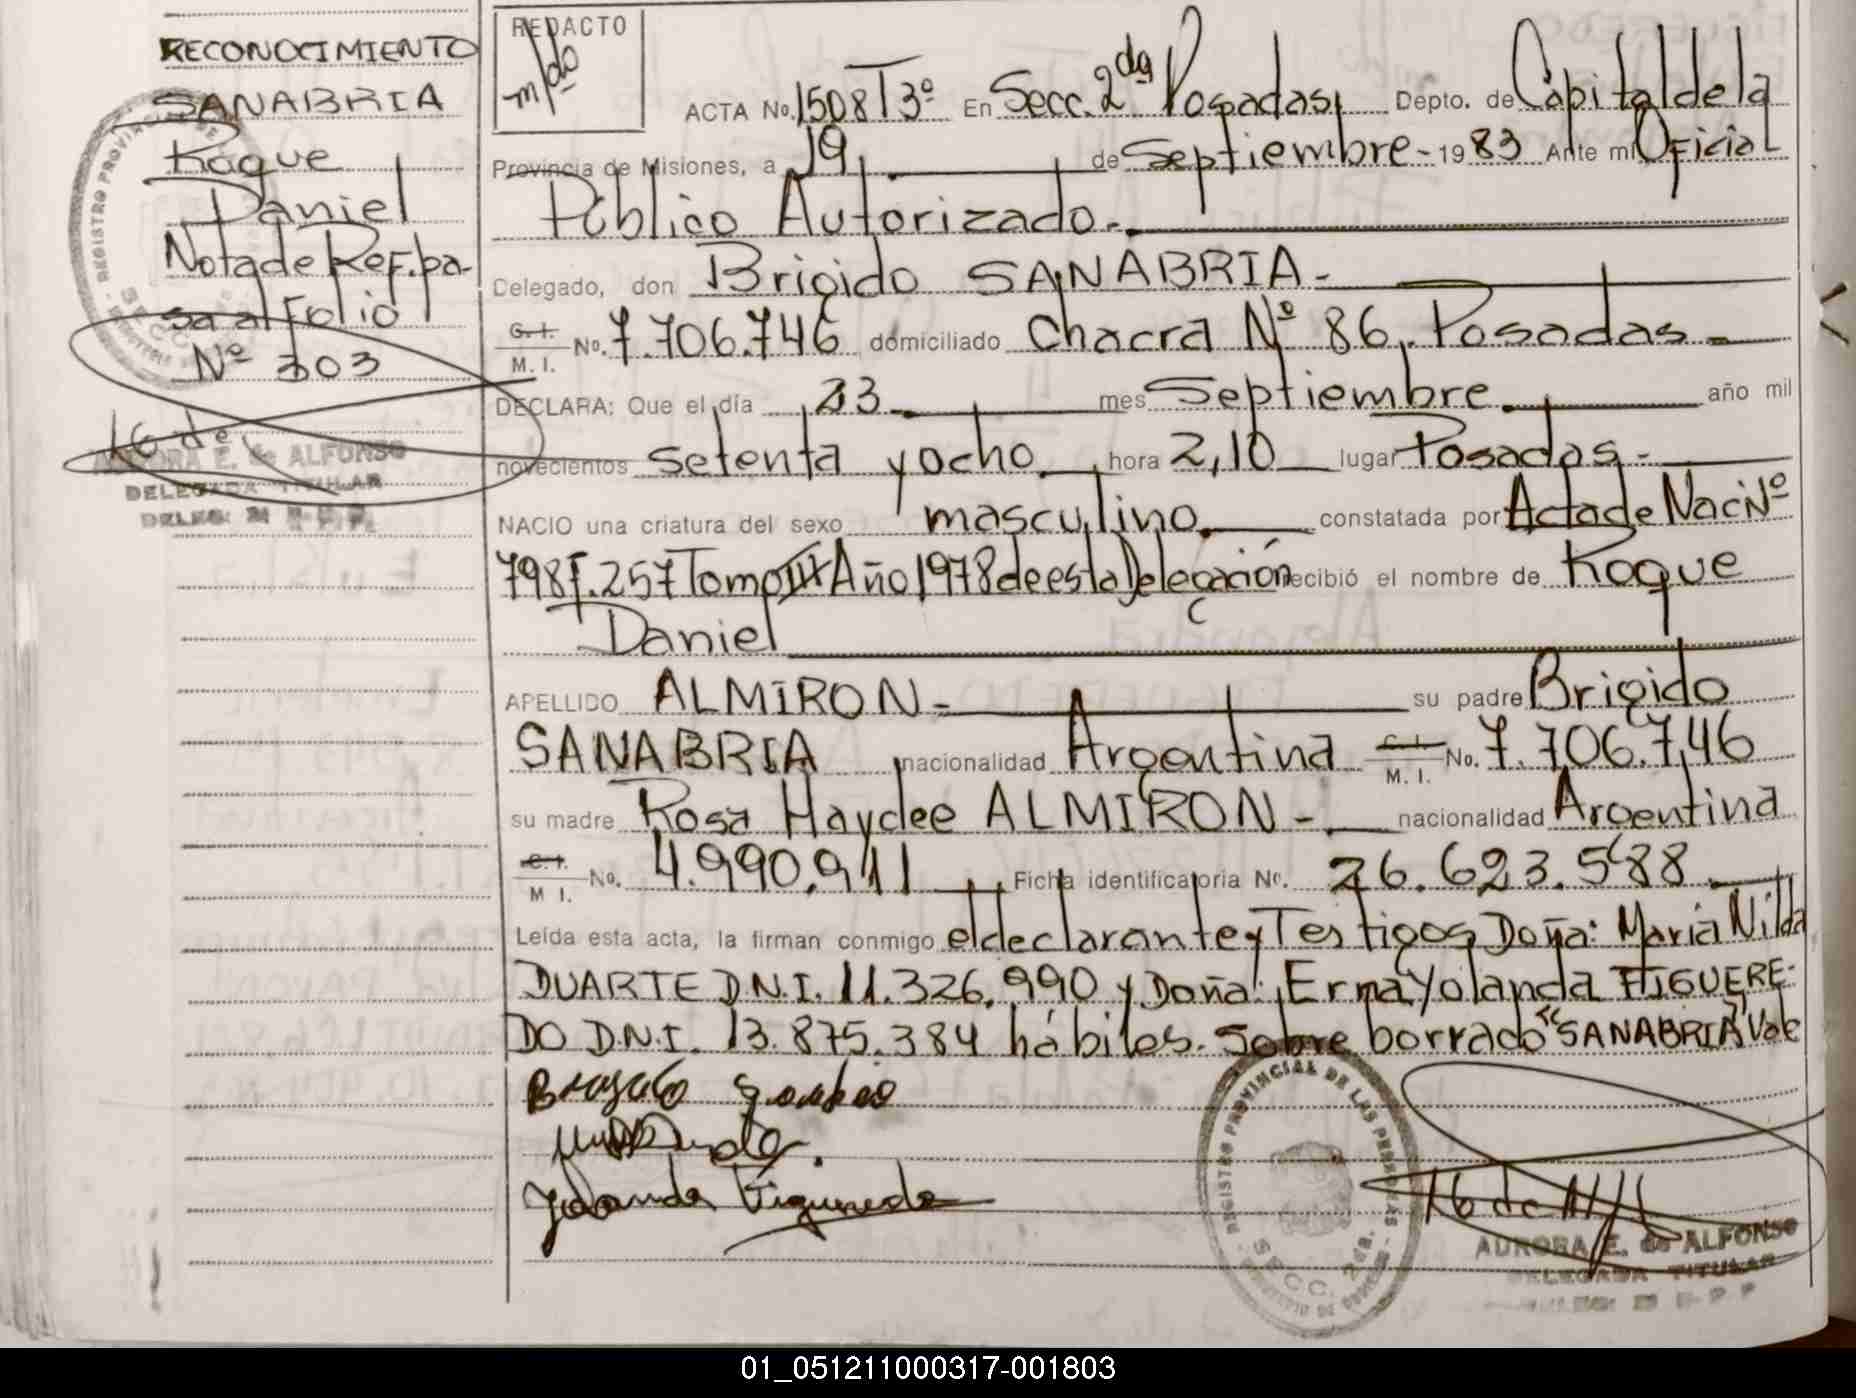 RECONOCIMIENTO
SANABRIA
Roque
Daniel
Nota de Ref. pa-
sa al Folio
Nº 303
AURORA E. de ALFONSO
DELEGADA TITULAR
REDACTO
ACTA No. 1508 T 3º En Secc. 2da Posadas, Depto. de Capital de la
Provincia de Misiones, a 19 de Septiembre - 1983 Ante mi Oficial
Público Autorizado.-
Delegado, don Brigido SANABRIA-
C. I. M. I. No. 7.706.746 domiciliado Chacra Nº 86, Posadas-
DECLARA: Que el día 23 mes Septiembre año mil
novecientos setenta y ocho hora 2,10 lugar Posadas.-
NACIO una criatura del sexo masculino. constatada por Acta de Nac. Nº
798 F. 257 Tomo III Año 1978 de esta Delegación recibió el nombre de Roque
Daniel
APELLIDO ALMIRON- su padre Brigido
SANABRIA nacionalidad Argentina C. I. M. I. No. 7.706.746
su madre Rosa Haydee ALMIRON- nacionalidad Argentina
C. I. M I. No. 4.990.911 Ficha identificatoria No. 26.623.588
Leída esta acta, la firman conmigo el declarante y Testigos Doña: María Nilda
DUARTE D.N.I. 11.326.990 y Doña: Erma Yolanda FIGUERE-
DO D.N.I. 13.875.384 hábiles. Sobre borrado "SANABRIA" Vale
Yolanda Figueredo
REGISTRO PROVINCIAL DE LAS PERSONAS
SECC. 2da.
AURORA E. de ALFONSO
DELEGADA TITULAR
01_051211000317-001803